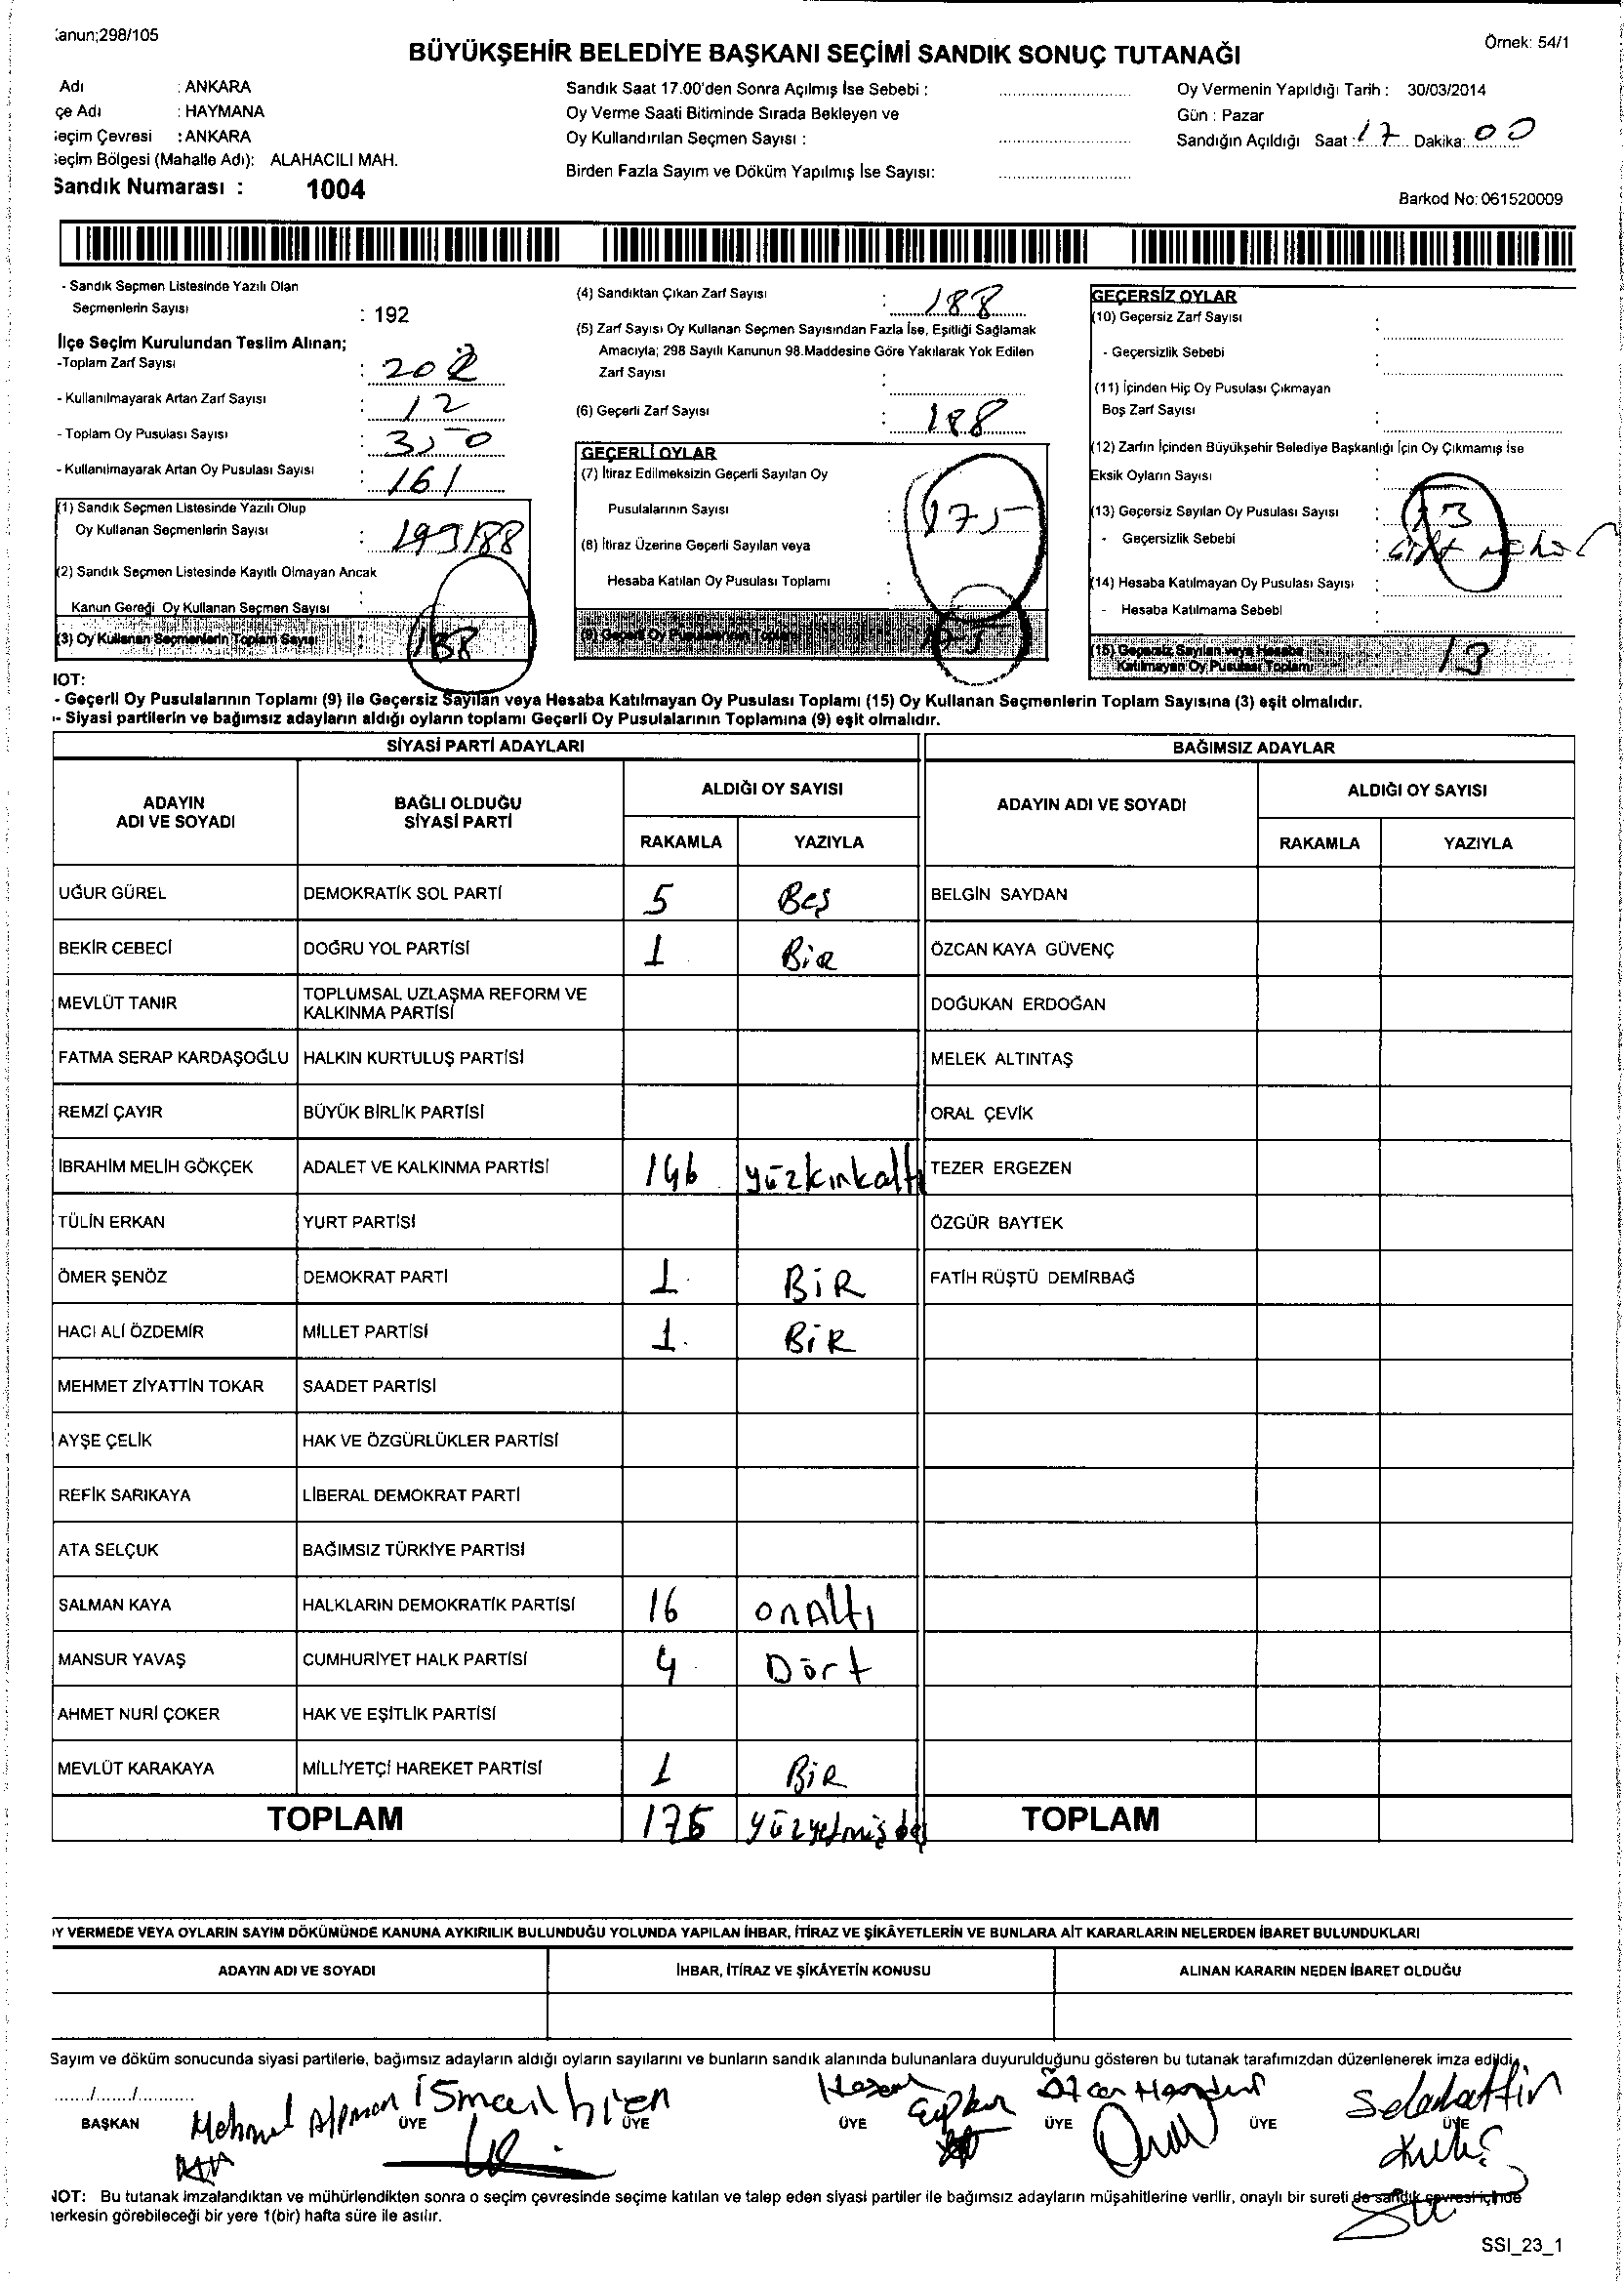 anun;298/105
Örnek: 54/1
BÜYÜKŞEHİR BELEDİYE BAŞKANI SEÇİMİ SANDIK SONUÇ TUTANAĞI
Adı : ANKARA
çe Adı : HAYMANA
eçim Çevresi : ANKARA
eçim Bölgesi (Mahalle Adı): ALAHACILI MAH.
Sandık Numarası : 1004
Sandık Saat 17.00'den Sonra Açılmış İse Sebebi :
Oy Verme Saati Bitiminde Sırada Bekleyen ve
Oy Kullandırılan Seçmen Sayısı :
Birden Fazla Sayım ve Döküm Yapılmış İse Sayısı:
Oy Vermenin Yapıldığı Tarih : 30/03/2014
Gün : Pazar
Sandığın Açıldığı Saat : 17 Dakika: 00
Barkod No: 061520009
- Sandık Seçmen Listesinde Yazılı Olan
Seçmenlerin Sayısı : 192
İlçe Seçim Kurulundan Teslim Alınan;
-Toplam Zarf Sayısı : 202
- Kullanılmayarak Artan Zarf Sayısı : 12
- Toplam Oy Pusulası Sayısı : 350
- Kullanılmayarak Artan Oy Pusulası Sayısı : 161
(1) Sandık Seçmen Listesinde Yazılı Olup
Oy Kullanan Seçmenlerin Sayısı : 188
(2) Sandık Seçmen Listesinde Kayıtlı Olmayan Ancak
Kanun Gereği Oy Kullanan Seçmen Sayısı :
(3) Oy Kullanan Seçmenlerin Toplam Sayısı 188
(4) Sandıktan Çıkan Zarf Sayısı : 188
(5) Zarf Sayısı Oy Kullanan Seçmen Sayısından Fazla İse, Eşitliği Sağlamak
Amacıyla; 298 Sayılı Kanunun 98.Maddesine Göre Yakılarak Yok Edilen
Zarf Sayısı :
(6) Geçerli Zarf Sayısı : 188
GEÇERLİ OYLAR
(7) İtiraz Edilmeksizin Geçerli Sayılan Oy
Pusulalarının Sayısı : 175
(8) İtiraz Üzerine Geçerli Sayılan veya
Hesaba Katılan Oy Pusulası Toplamı :
(9) Geçerli Oy Pusulalarının Toplamı 175
GEÇERSİZ OYLAR
(10) Geçersiz Zarf Sayısı :
- Geçersizlik Sebebi :
(11) İçinden Hiç Oy Pusulası Çıkmayan
Boş Zarf Sayısı :
(12) Zarfın İçinden Büyükşehir Belediye Başkanlığı İçin Oy Çıkmamış İse
Eksik Oyların Sayısı :
(13) Geçersiz Sayılan Oy Pusulası Sayısı : 13
- Geçersizlik Sebebi : çift mühür
(14) Hesaba Katılmayan Oy Pusulası Sayısı :
- Hesaba Katılmama Sebebi :
(15) Geçersiz Sayılan veya Hesaba
Katılmayan Oy Pusulası Toplamı 13
NOT:
- Geçerli Oy Pusulalarının Toplamı (9) ile Geçersiz Sayılan veya Hesaba Katılmayan Oy Pusulası Toplamı (15) Oy Kullanan Seçmenlerin Toplam Sayısına (3) eşit olmalıdır.
- Siyasi partilerin ve bağımsız adayların aldığı oyların toplamı Geçerli Oy Pusulalarının Toplamına (9) eşit olmalıdır.
SİYASİ PARTİ ADAYLARI BAĞIMSIZ ADAYLAR
ADAYIN ADI VE SOYADI BAĞLI OLDUĞU SİYASİ PARTİ ALDIĞI OY SAYISI ADAYIN ADI VE SOYADI ALDIĞI OY SAYISI
RAKAMLA YAZIYLA RAKAMLA YAZIYLA
UĞUR GÜREL DEMOKRATİK SOL PARTİ 5 Beş BELGİN SAYDAN
BEKİR CEBECİ DOĞRU YOL PARTİSİ 1 BiR ÖZCAN KAYA GÜVENÇ
MEVLÜT TANIR TOPLUMSAL UZLAŞMA REFORM VE KALKINMA PARTİSİ DOĞUKAN ERDOĞAN
FATMA SERAP KARDAŞOĞLU HALKIN KURTULUŞ PARTİSİ MELEK ALTINTAŞ
REMZİ ÇAYIR BÜYÜK BİRLİK PARTİSİ ORAL ÇEVİK
İBRAHİM MELİH GÖKÇEK ADALET VE KALKINMA PARTİSİ 146 yüzkırkaltı TEZER ERGEZEN
TÜLİN ERKAN YURT PARTİSİ ÖZGÜR BAYTEK
ÖMER ŞENÖZ DEMOKRAT PARTİ 1 BİR FATİH RÜŞTÜ DEMİRBAĞ
HACI ALİ ÖZDEMİR MİLLET PARTİSİ 1 BİR
MEHMET ZİYATTİN TOKAR SAADET PARTİSİ
AYŞE ÇELİK HAK VE ÖZGÜRLÜKLER PARTİSİ
REFİK SARIKAYA LİBERAL DEMOKRAT PARTİ
ATA SELÇUK BAĞIMSIZ TÜRKİYE PARTİSİ
SALMAN KAYA HALKLARIN DEMOKRATİK PARTİSİ 16 onAltı
MANSUR YAVAŞ CUMHURİYET HALK PARTİSİ 4 Dört
AHMET NURİ ÇOKER HAK VE EŞİTLİK PARTİSİ
MEVLÜT KARAKAYA MİLLİYETÇİ HAREKET PARTİSİ 1 BiR
TOPLAM 175 yüzyetmişbeş TOPLAM
Y VERMEDE VEYA OYLARIN SAYIM DÖKÜMÜNDE KANUNA AYKIRILIK BULUNDUĞU YOLUNDA YAPILAN İHBAR, İTİRAZ VE ŞİKÂYETLERİN VE BUNLARA AİT KARARLARIN NELERDEN İBARET BULUNDUKLARI
ADAYIN ADI VE SOYADI İHBAR, İTİRAZ VE ŞİKÂYETİN KONUSU ALINAN KARARIN NEDEN İBARET OLDUĞU
Sayım ve döküm sonucunda siyasi partilerle, bağımsız adayların aldığı oyların sayılarını ve bunların sandık alanında bulunanlara duyurulduğunu gösteren bu tutanak tarafımızdan düzenlenerek imza edildi.
......./......./...........
Mehmet Alpman İSmail Hasan Özcan Selahattin
BAŞKAN ÜYE ÜYE ÜYE ÜYE ÜYE ÜYE
NOT: Bu tutanak imzalandıktan ve mühürlendikten sonra o seçim çevresinde seçime katılan ve talep eden siyasi partiler ile bağımsız adayların müşahitlerine verilir, onaylı bir sureti de sandık çevresi içinde
herkesin görebileceği bir yere 1(bir) hafta süre ile asılır.
SSI_23_1